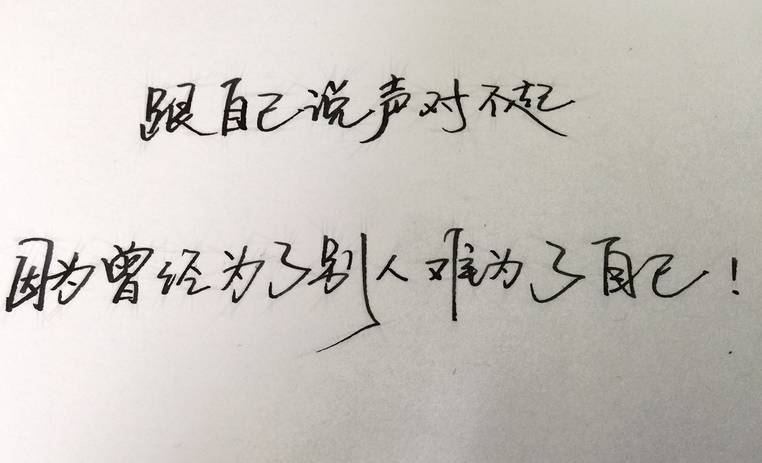 跟自己说声对不起
因为曾经为了别人难为了自己!